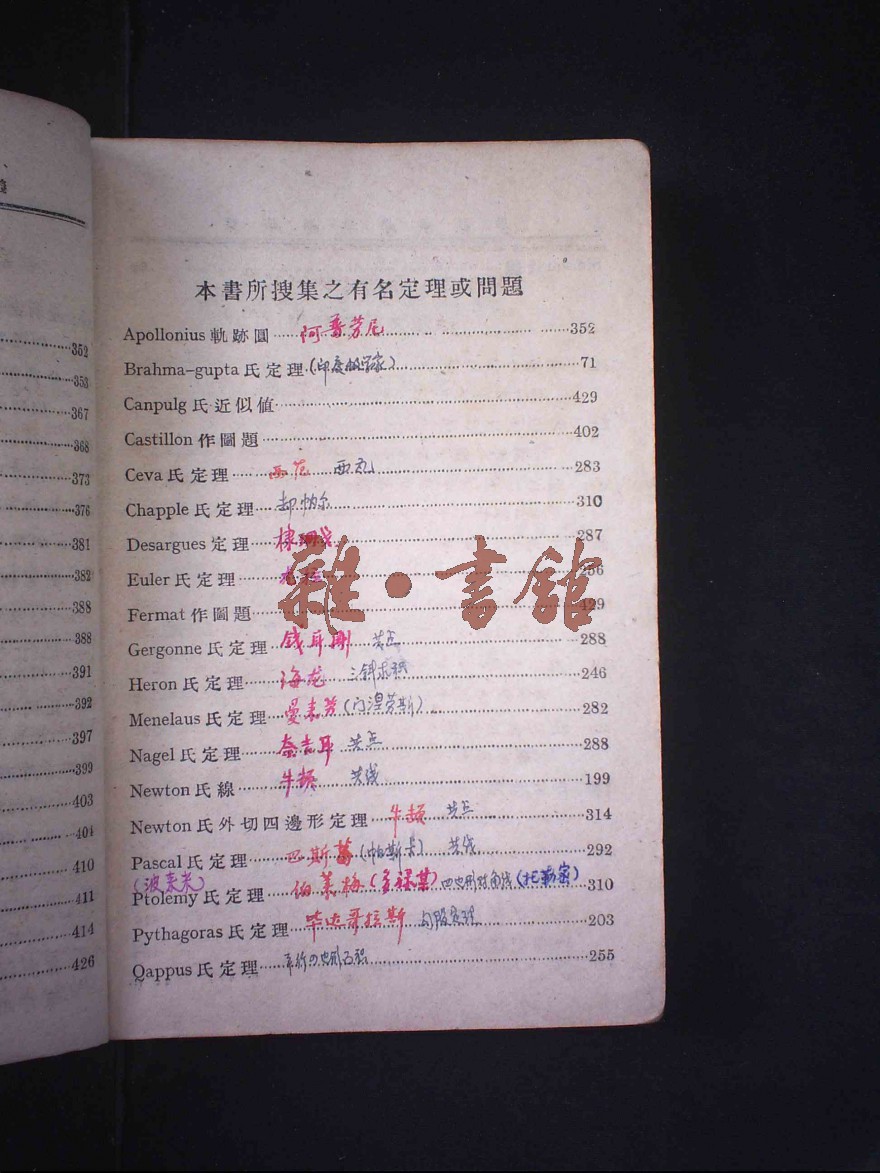 352
353
367
368
373
376
381
382
388
388
391
392
397
399
403
404
410
411
414
426
本書所搜集之有名定理或問題
Apollonius 軌跡圓 352
Brahma-gupta 氏定理 71
Canpulg 氏近似値 429
Castillon 作圖題 402
Ceva 氏定理 西瓦 283
Chapple 氏定理 却帕尔 310
Desargues 定理 287
Euler 氏定理 256
Fermat 作圖題 429
Gergonne 氏定理 錢耳剛 共点 288
Heron 氏定理 海龙 三斜求积 246
Menelaus 氏定理 曼来劳 (门涅劳斯) 282
Nagel 氏定理 奈吉耳 共点 288
Newton 氏線 牛顿 共线 199
Newton 氏外切四邊形定理 牛顿 共点 314
Pascal 氏定理 巴斯葛 (帕斯卡) 共线 292
Ptolemy 氏定理 310
Pythagoras 氏定理 毕达哥拉斯 勾股定理 203
Qappus 氏定理 255
雜·書館